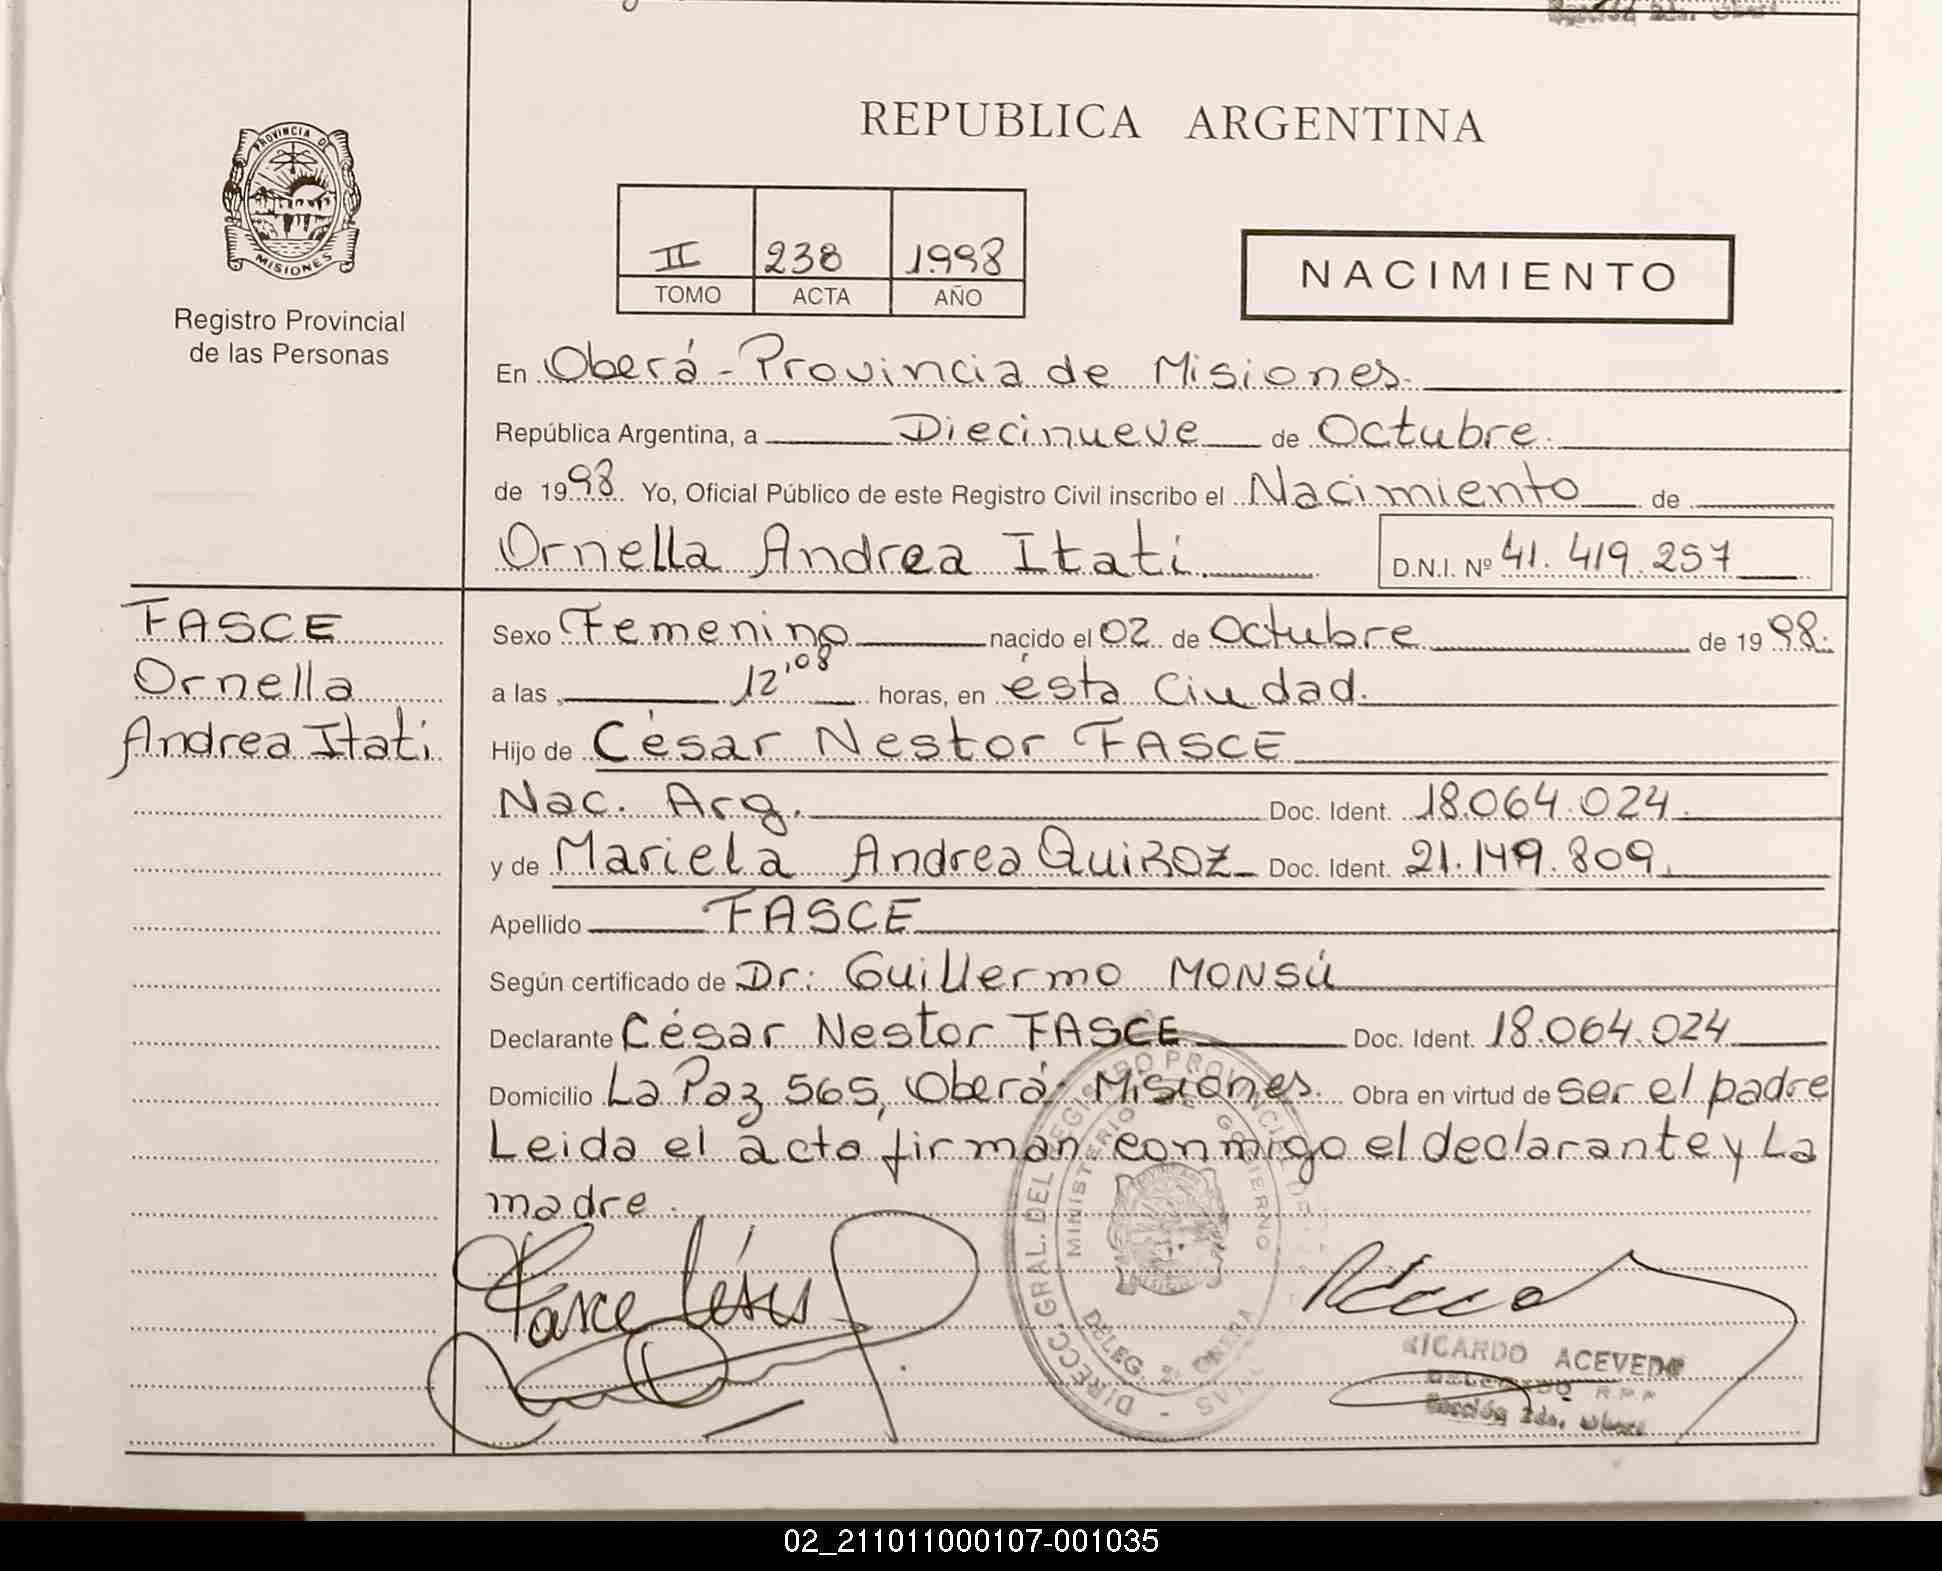 REPUBLICA ARGENTINA
PROVINCIA DE
MISIONES
Registro Provincial
de las Personas
II 238 1998
TOMO ACTA AÑO
NACIMIENTO
En Oberá - Provincia de Misiones.
República Argentina, a Diecinueve de Octubre.
de 1998. Yo, Oficial Público de este Registro Civil inscribo el Nacimiento de
Ornella Andrea Itatí. D.N.I. Nº 41.419.257
FASCE
Ornella
Andrea Itati.
Sexo Femenino nacido el 02 de Octubre de 1998.
a las 12,08 horas, en ésta Ciudad.
Hijo de César Nestor FASCE
Nac. Arg. Doc. Ident. 18.064.024.
y de Mariela Andrea QuiROZ Doc. Ident. 21.149.809.
Apellido FASCE
Según certificado de Dr: Guillermo MONSÚ
Declarante César Nestor FASCE Doc. Ident. 18.064.024
Domicilio La Paz 565, Oberá, Misiones. Obra en virtud de ser el padre
Leida el acta firman conmigo el declarante y La
madre.
Fasce César
DIRECC. GRAL. DEL REGISTRO PROVINCIAL DE LAS
MINISTERIO DE GOBIERNO
DELEG. 2ª OBERA
RICARDO ACEVEDO
DELEGADO R.P.P
Sección 2da. Oberá
02_211011000107-001035